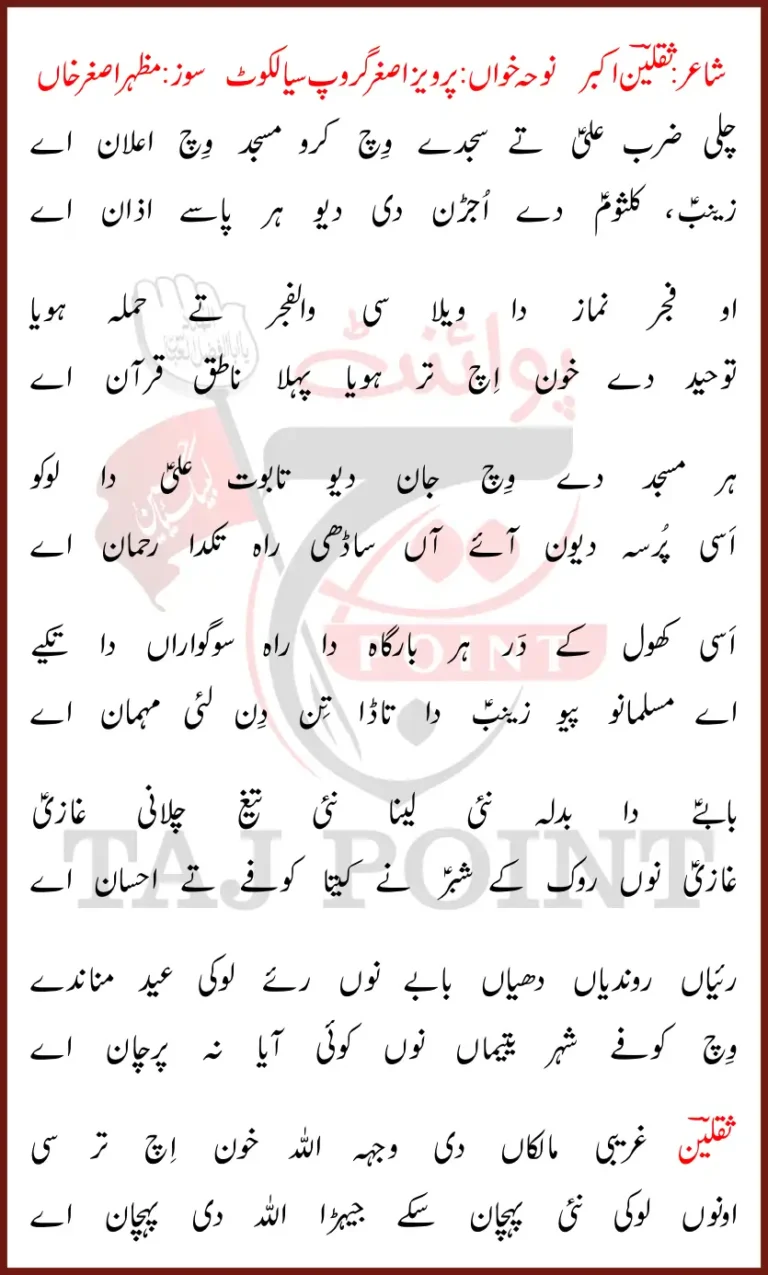 شاعر:ثقلینؔ اکبر نوحہ خواں:پرویز اصغر گروپ سیالکوٹ سوز:مظہر اصغر خاں
چلی ضرب علیؑ تے سجدے وِچ کرو مسجد وِچ اعلان اے
زینبؑ، کلثومؑ دے اُجڑن دی دیو ہر پاسے اذان اے
او فجر نماز دا ویلا سی والفجر تے حملہ ہویا
توحید دے خون اِچ تر ہویا پہلا ناطق قرآن اے
ہر مسجد دے وِچ جان دیو تابوت علیؑ دا لوکو
اَسی پُرسہ دیون آئے آں ساڈھی راہ تکدا رحمان اے
اَسی کھول کے دَر ہر بارگاہ دا راہ سوگواراں دا تکیے
اے مسلمانو پیو زینبؑ دا تاڈا تِن دِن لئی مہمان اے
بابےؑ دا بدلہ نئی لینا نئی تیغ چلانی غازیؑ
غازیؑ نوں روک کے شبرؑ نے کیتا کوفے تے احسان اے
رئیاں روندیاں دھیاں بابے نوں رئے لوکی عید مناندے
وِچ کوفے شہر یتیماں نوں کوئی آیا نہ پرچان اے
ثقلینؔ غریبی مالکاں دی وجہہ اللہ خون اِچ تر سی
اونوں لوکی نئی پہچان سکے جیہڑا اللہ دی پہچان اے
پوائنٹ
لبیک یا حسین
POINT
TAJ POINT